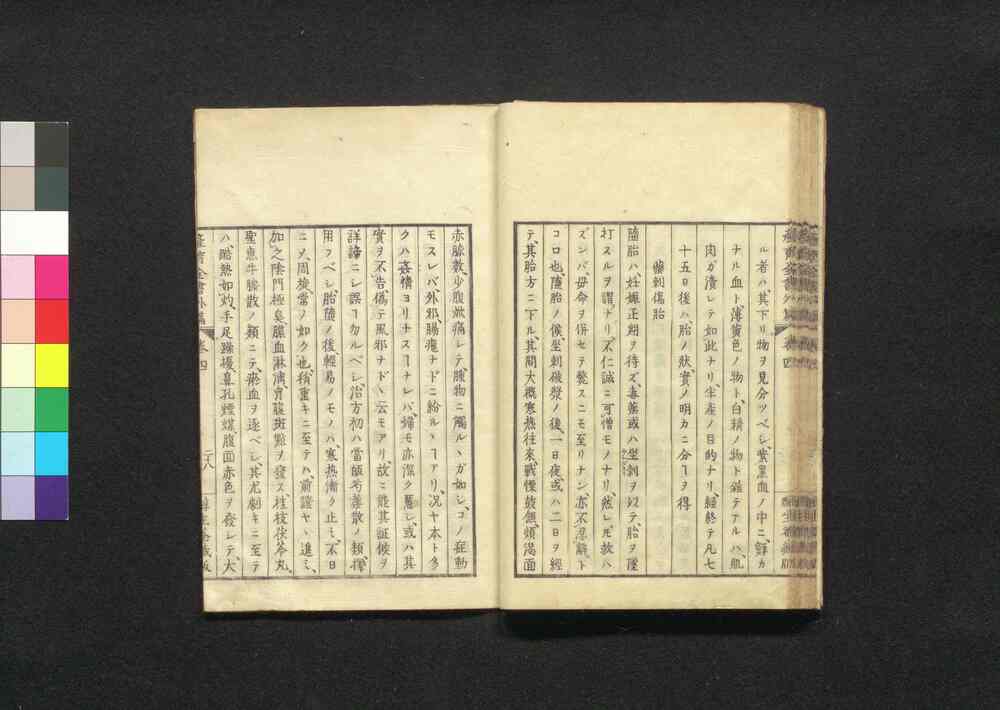 ル者ハ其下リ物ヲ見分ツベシ、紫黒血ノ中ニ、鮮カ
ナル血ト、薄黄色ノ物ト、白精ノ物ト雑テアルハ、肌
肉ガ潰レテ如此ナリ、生産ノ目的ナリ、經終テ凡七
十五日後ハ胎ノ狀實ノ明カニ分ヿヲ得
藥刺傷胎
墮胎ハ、妊娠正期ヲ待ズ、毒藥或ハ坐刺ヲ以テ、胎ヲ墮
打スルヲ謂ナリ、不仁誠ニ可憎モノナリ、然レ𪜈故ハ
ズンバ、母命ヲ併セテ斃スニモ至リナン、亦不忍辭ト
コロ也、墮胎ノ候、坐刺破漿ノ後、一日夜、或ハ二日ヲ經
テ、其胎方ニ下ル、其間大概寒熱往來、戰慄鼓頷、煩渇面
赤、脉數、少腹㽲痛シテ、腫物ニ觸ルヽガ如シ、コノ症動
モスレバ、外邪、腸癰ナドニ紛ルヽヿアリ、况ヤ本ト多
クハ姦精ヨリナスヿナレバ、婦モ亦深ク慝シ、或ハ其
實ヲ不告、僞テ風邪ナドヽ云モアリ、故ニ能其証候ヲ
詳諦ニシ誤ヿ勿ルベシ、治方初ハ當歸芍藥散ノ類、擇
用フベシ、胎墮ノ後、輕易ノモノハ、寒熱漸ク止ミ、不日
ニソ、周旋常ノ如ク也、稍重キニ至テハ、前證ヤヽ進ミ、
加之陰門極臭、膿血淋漓、背腹斑黯ヲ發ス、桂枝茯苓丸、
聖惠牛膝散ノ類ニテ、瘀血ヲ逐ベシ、其尤劇キニ至テ
ハ、酷熱如灼、手足躁擾、鼻孔煙煤、腹面赤色ヲ發シテ、大
産育全書外篇 卷四 二八